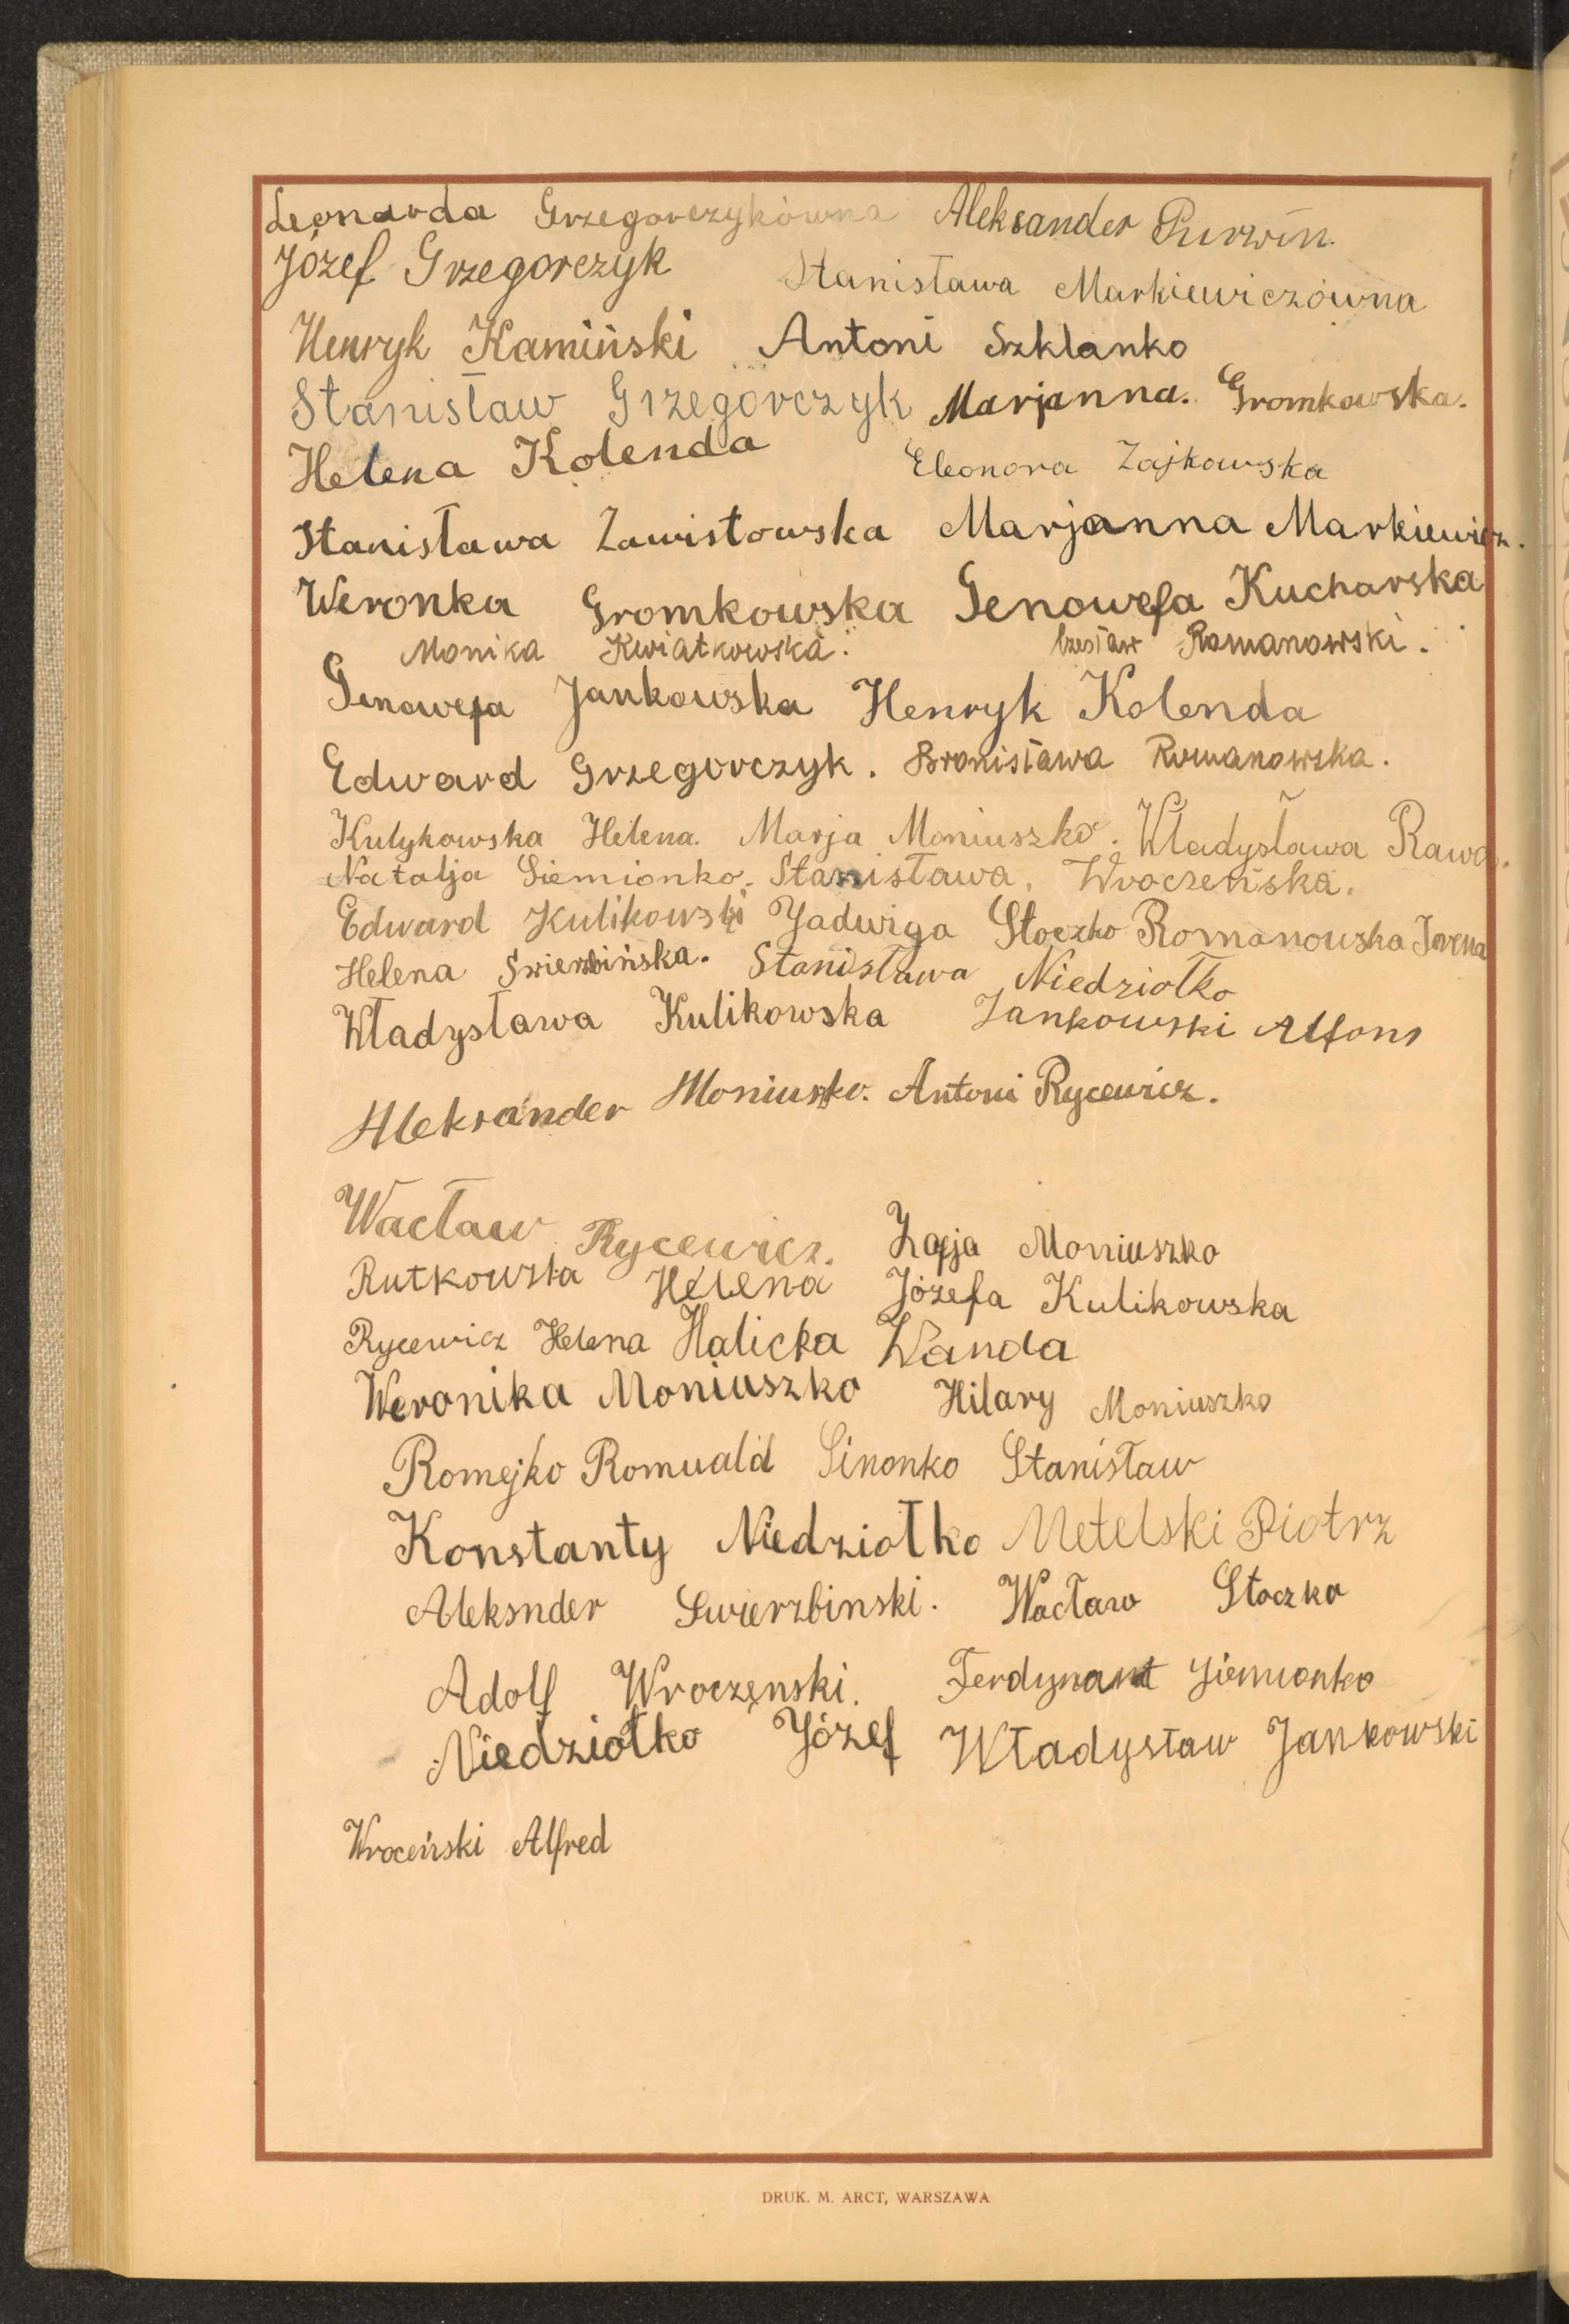 Leonarda Grzegorczykówna Aleksander Purwin.
Józef Grzegorczyk Stanisława Markiewiczówna
Henryk Kamiński Antoni Szklanko
Stanisław Grzegorczyk Marjanna. Gromkowska.
Helena Kolenda Eleonora Zajkowska
Stanisława Zawistowska Marjanna Markiewicz.
Weronka Gromkowska Genowefa Kucharska
Monika Kwiatkowska. Czesław Romanowski.
Genowefa Jankowska Henryk Kolenda
Edward Grzegorczyk. Bronisława Romanowska.
Kulykowska Helena. Marja Moniuszko. Władysława Rawa.
Natalja Siemionko. Stanisława. Wroczeńska.
Edward Kulikowski Jadwiga Stoczko Romanowska Irena
Helena Swierzbińska. Stanisława Niedziołko
Władysława Kulikowska Jankowski Alfons
Aleksander Moniuszko. Antoni Rycewicz.
Wacław Rycewicz. Zofja Moniuszko
Rutkowska Helena Józefa Kulikowska
Rycewicz Helena Halicka Wanda
Weronika Moniuszko Hilary Moniuszko
Romejko Romuald Sinonko Stanisław
Konstanty Niedziołko Metelski Piotrz
Aleksnder Swierzbinski. Wacław Stoczko
Adolf Wroczenski. Ferdynant Siemionko
Niedziołko Józef Władysław Jankowski
Wroceński Alfred
DRUK. M. ARCT, WARSZAWA